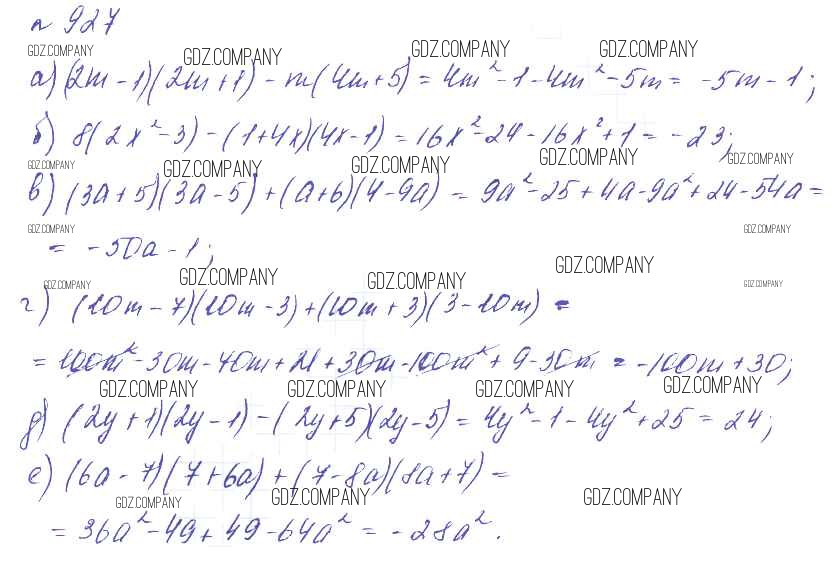 № 927
GDZ.COMPANY GDZ.COMPANY GDZ.COMPANY GDZ.COMPANY
а) (2m - 1)(2m + 1) - m(4m + 5) = 4m² - 1 - 4m² - 5m = -5m - 1;
б) 8(2x² - 3) - (1 + 4x)(4x - 1) = 16x² - 24 - 16x² + 1 = -23;
GDZ.COMPANY GDZ.COMPANY GDZ.COMPANY GDZ.COMPANY GDZ.COMPANY
в) (3a + 5)(3a - 5) + (a + 6)(4 - 9a) = 9a² - 25 + 4a - 9a² + 24 - 54a =
GDZ.COMPANY GDZ.COMPANY
= -50a - 1;
GDZ.COMPANY GDZ.COMPANY GDZ.COMPANY GDZ.COMPANY GDZ.COMPANY
г) (10m - 7)(10m - 3) + (10m + 3)(3 - 10m) =
= 100m² - 30m - 70m + 21 + 30m - 100m² + 9 - 30m = -100m + 30;
GDZ.COMPANY GDZ.COMPANY GDZ.COMPANY GDZ.COMPANY
д) (2y + 1)(2y - 1) - (2y + 5)(2y - 5) = 4y² - 1 - 4y² + 25 = 24;
е) (6a - 7)(7 + 6a) + (7 - 8a)(8a + 7) =
GDZ.COMPANY GDZ.COMPANY GDZ.COMPANY
= 36a² - 49 + 49 - 64a² = -28a².